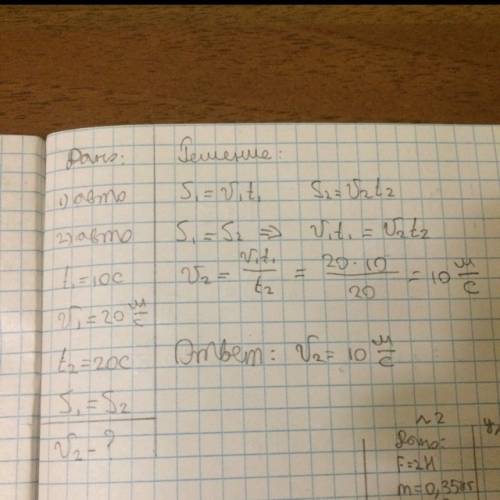 Дано:
1) авто
2) авто
t₁=10с
v₁=20 м/с
t₂=20с
S₁=S₂
v₂-?
Решение:
S₁=v₁t₁ S₂=v₂t₂
S₁=S₂ ⇒ v₁t₁=v₂t₂
v₂ = v₁t₁/t₂ = 20·10/20 = 10 м/с
Ответ: v₂=10 м/с
~2
Дано:
F=2Н